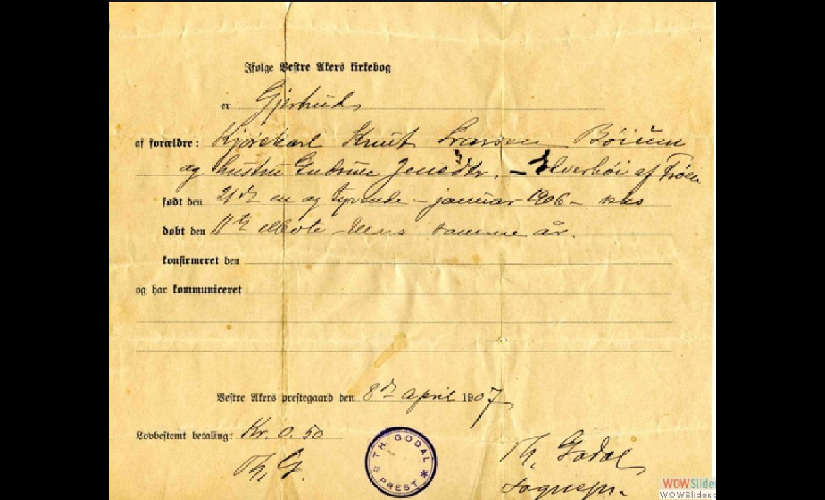 Ifølge Vestre Akers kirkebog
er Gjertrud
af forældre: Kjørekarl Knut Larsen Bøium
og hustru Gudrun Jensdtr. – af
født den 21de en og tyvende – januar 1906 –
døbt den 11te ellevte samme år.
konfirmeret den
og har kommuniceret
Vestre Akers prestegaard den 8de april 1907
Lovbestemt betaling: Kr. 0.50
Th. G.
TH. GODAL
S PREST
Th. Godal
Sognepr.
WOWSlider
WOWSlider